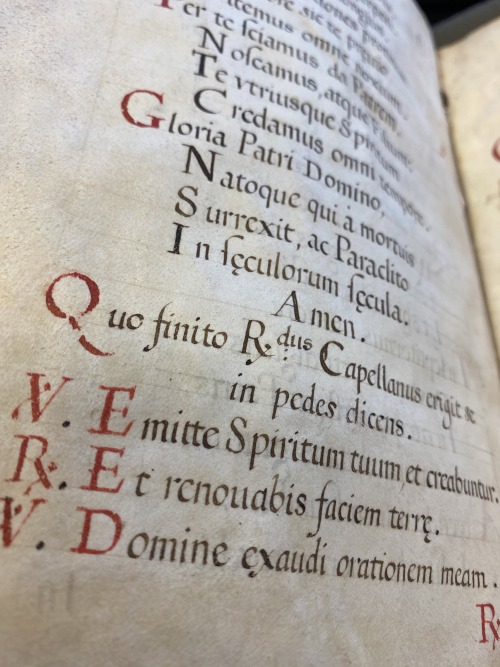 Per te sciamus da Patrem,
Noscamus, atque Filium:
Te vtriusque Spiritum
Credamus omni tempore.
Gloria Patri Domino,
Natoque qui à mortuis
Surrexit, ac Paraclito
In sęculorum sęcula.
Amen.
Quo finito R.dus Capellanus erigit se
in pedes dicens.
V. Emitte Spiritum tuum, et creabuntur.
R. Et renouabis faciem terrę.
V. Domine exaudi orationem meam.
R.